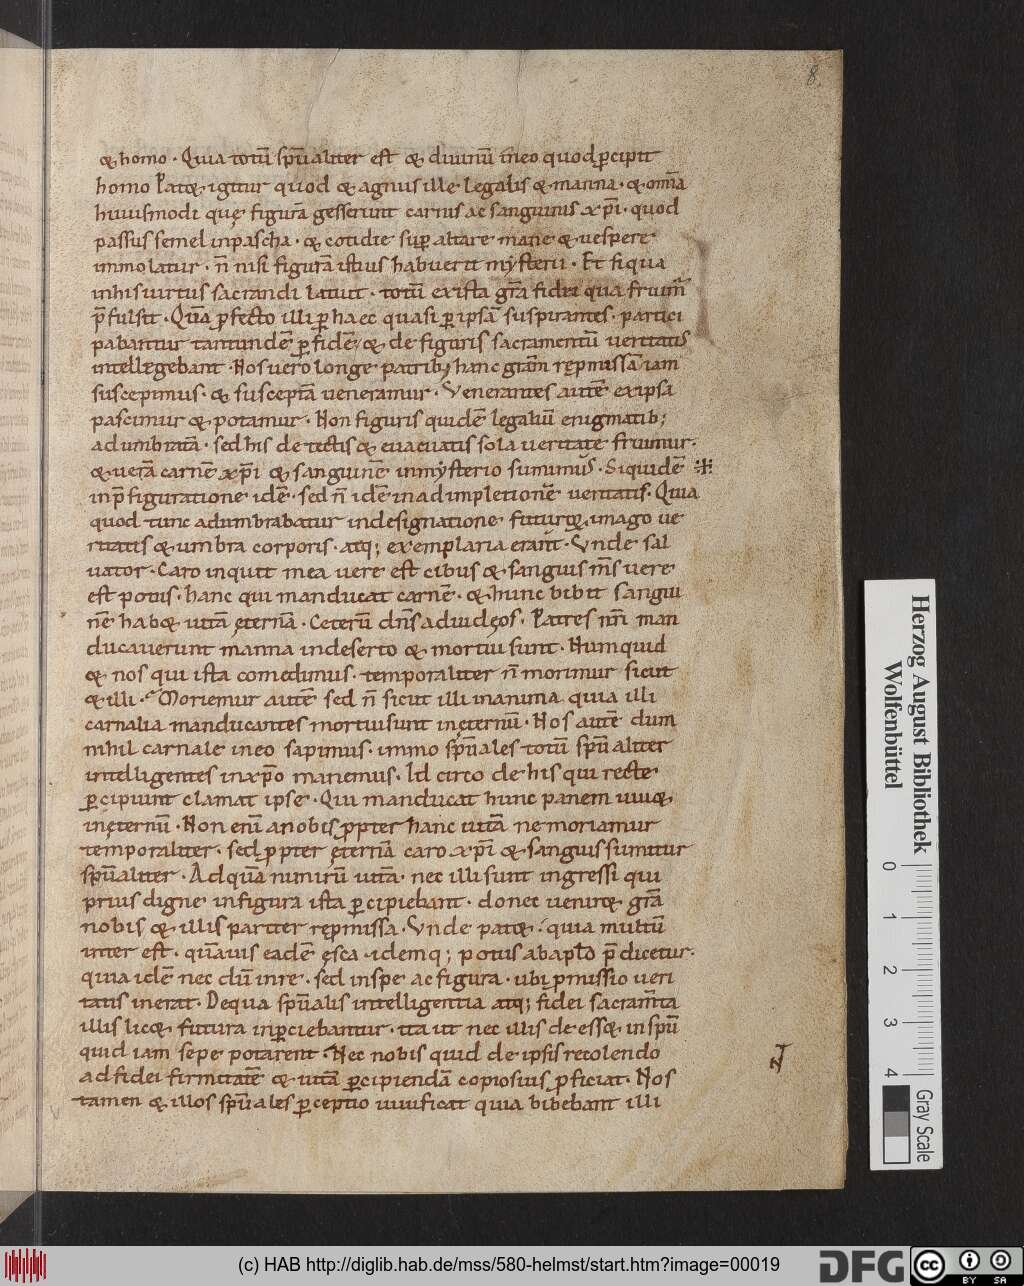 8.
& homo · Quia totū sp̄ualiter est & diuinū in eo quod ꝑcipit
homo Pat& igitur quod & agnus ille legalis & manna · & om̄ia
huiusmodi quę figurā gesserunt carnis ac sanguinis xp̄i · quod
passus semel in pascha · & cotidie suꝑ altare mane & uespere
immolatur · n̄ nisi figurā istius habuerit mysterii · Et si qua
in his uirtus sacrandi latuit · totū ex ista gr̄a fidei qua fruim̄
p̄fulsit · Quā ꝓfecto illi ꝑ haec quasi ꝑ ipsā suspirantes · partici
pabantur tantundē ꝑ fidē / & de figuris sacramentū ueritatis
intellegebant · Nos uero longe patribꝫ hanc gr̄am repmissā iam
suscepimus · & susceptā ueneramur · Venerantes autē ex ipsa
pascimur & potamur · Non figuris quidē legaliū enigmatib;
adumbratā · sed his detectis & euacuatis sola ueritate fruimur ·
& uerā carnē xp̄i & sanguinē in mysterio sumimus · Siquidē
in p̄figuratione idē · sed n̄ idē in adimpletionē ueritatis · Quia
quod tunc adumbrabatur in designatione futurꝫ, imago ue
ritatis & umbra corporis · atq; exemplaria erant · Vnde sal
uator · Caro inquit mea uere est cibus & sanguis m̄s uere
est potus · hanc qui manducat carnē · & hunc bibit sangui
nē hab& uitā ęternā · Ceterū dn̄s ad iudęos · Patres nr̄i man
ducauerunt manna in deserto & mortui sunt · Numquid
& nos qui ista comedimus · temporaliter n̄ morimur sicut
& illi · Moriemur autē sed n̄ sicut illi in anima quia illi
carnalia manducantes mortui sunt in ęternū · Nos autē dum
nihil carnale in eo sapimus · immo sp̄uales totū sp̄ualiter
intelligentes in xp̄o manemus · Id circo de his qui recte
ꝑcipiunt clamat ipse · Qui manducat hunc panem uiu&
in ęternū · Non enī a nobis ꝓpter hanc uitā ne moriamur
temporaliter · sed ꝓpter ęternā caro xp̄i & sanguis sumitur
sp̄ualiter · Ad quā nimirū uitā · nec illi sunt ingressi qui
prius digne in figura ista ꝑcipiebant · donec uenir& gr̄a
nobis & illis pariter repmissa · Vnde pat& · quia multū
inter est · quāuis eadē ęsca · idemq; potus ab apl̄o p̄dicetur ·
quia idē nec dū in re · sed in spe ac figura · ubi ꝓmissio ueri
tatis inerat · De qua sp̄ualis intelligentia atq; fidei sacram̄ta
illis lic& futura inꝑciebantur · ita ut nec illis deess& in sp̄u
quid iam sepe potarent · Nec nobis quid de ipsis recolendo
ad fidei firmitatē & uitā ꝑcipiendā copiosius ꝓficiat · Nos
tamen & illos sp̄uales ꝑceptio uiuificat quia bibebant illi
Herzog August Bibliothek
Wolfenbüttel
0 1 2 3 4
Gray Scale
(c) HAB http://diglib.hab.de/mss/580-helmst/start.htm?image=00019
DFG
cc BY SA